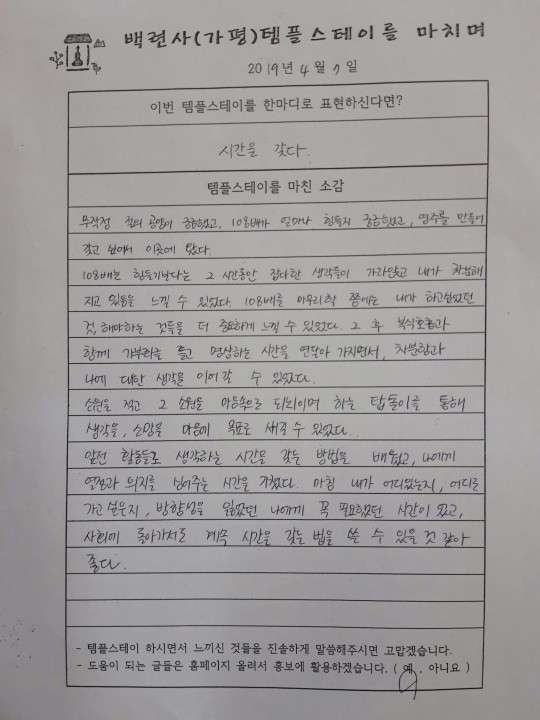 백련사(가평)템플스테이를 마치며
2019년 4월 7일
이번 템플스테이를 한마디로 표현하신다면?
시간을 갖다.
템플스테이를 마친 소감
무작정 절의 공양이 궁금했고, 108배가 얼마나 힘들지 궁금했고, 염주를 만들어
갖고 싶어서 이곳에 왔다.
108배는 힘들기보다는 그 시간동안 잡다한 생각들이 가라앉고 내가 차분해
지고 있음을 느낄 수 있었다. 108배를 마무리할 쯤에는 내가 하고싶었던
것, 해야하는 것들을 더 중요하게 느낄 수 있었다. 그 후 복식호흡과
함께 가부좌를 틀고 명상하는 시간을 연달아 가지면서, 차분함과
나에 대한 생각을 이어갈 수 있었다.
소원을 적고 그 소원을 마음속으로 되뇌이며 하는 탑돌이를 통해
생각을, 소망을 마음에 목표로 새길 수 있었다.
앞전 활동들로 생각하는 시간을 갖는 방법을 배웠고, 나에게
열정과 의지를 심어주는 시간을 가졌다. 마침 내가 어디있는지, 어디로
가고 싶은지, 방향성을 잃었던 나에게 꼭 필요했던 시간이 었고,
사회에 돌아가서도 계속 시간을 갖는 법을 쓸 수 있을 것 같아
좋다.
- 템플스테이 하시면서 느끼신 것들을 진솔하게 말씀해주시면 고맙겠습니다.
- 도움이 되는 글들은 홈페이지 올려서 홍보에 활용하겠습니다. ( 예 , 아니요 )